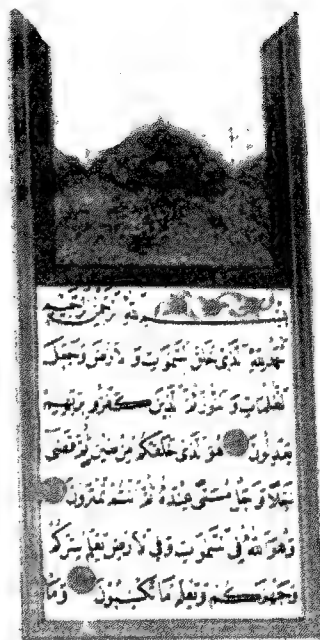 بسم الله الرحمن الرحيم
الحمد لله الذي خلق السموات والارض وجعل
الظلمات والنور ثم الذين كفروا بربهم
يعدلون هو الذي خلقكم من طين ثم قضى
اجلا واجل مسمى عنده ثم انتم تمترون
وهو الله في السموات وفي الارض يعلم سركم
وجهركم ويعلم ما تكسبون وما